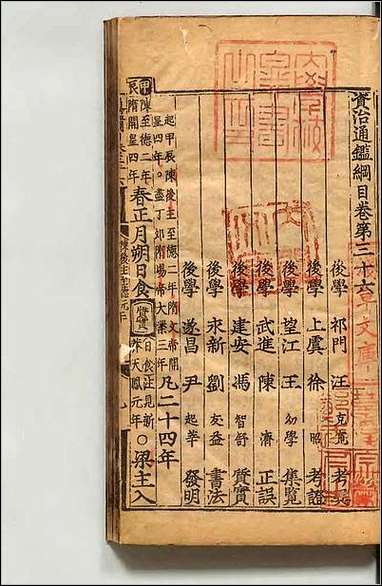 資治通鑑綱目卷第三十六
後學 祁門 汪 克寬 考異
後學 上虞 徐 昭 考證
後學 望江 王 幼學 集覽
後學 武進 陳 濟 正誤
後學 建安 馮 智舒 質實
後學 永新 劉 友益 書法
後學 遂昌 尹 起莘 發明
起甲辰陳後主至德二年隋文帝開
皇四年。盡丁卯隋煬帝大業三年 凡二十四年
甲辰 陳至德二年
隋開皇四年 春正月朔日食 質實 日食注見新
莽天鳳元年 ○梁主入